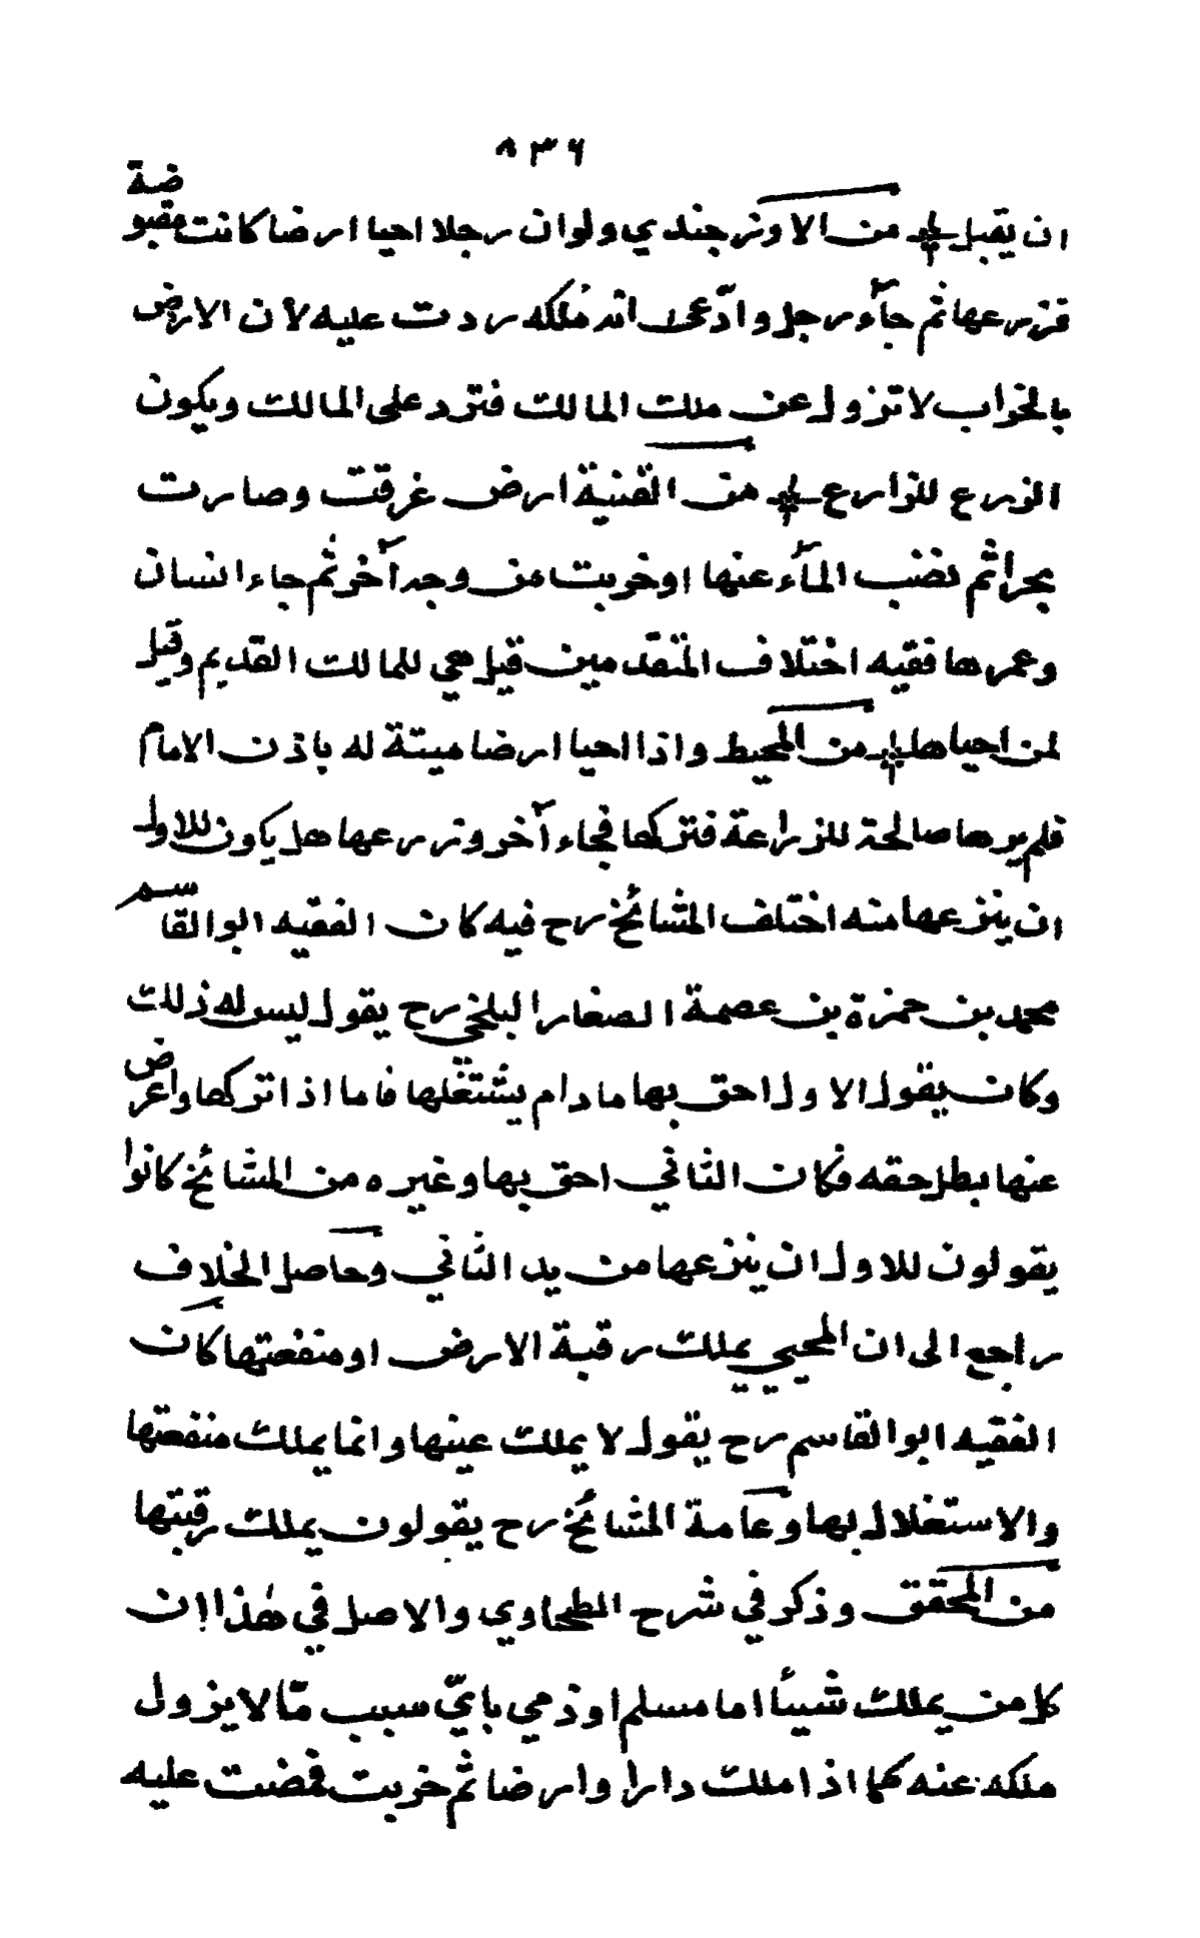 ٨٣٦
ان يقبل من الاوزجندي ولو ان رجلا احيا ارضا كانت مقبوضة
فزرعها ثم جآء رجل وادّعى انه ملكه ردت عليه لأن الارض
بالخراب لا تزول عن ملك المالك فترد على المالك ويكون
الزرع للزارع من القنية ارض غرقت وصارت
بحرا ثم نضب المآء عنها او خربت من وجه آخر ثم جاء انسان
وعمرها ففيه اختلاف المتقدّمين قيل هي للمالك القديم وقيل
لمن احياها من المحيط واذا احيا ارضا ميتة له باذن الامام
فلم يرها صالحة للزراعة فتركها فجاء آخر وزرعها هل يكون للاول
ان ينزعها منه اختلف المشائخ رح فيه كان الفقيه ابو القاسم
محمد بن حمزة بن عصمة الصفار البلخي رح يقول ليس له ذلك
وكان يقول الاول احق بها ما دام يشتغلها فاما اذا تركها واعرض
عنها بطل حقه فكان الثاني احق بها وغيره من المشائخ كانوا
يقولون للاول ان ينزعها من يد الثاني وحاصل الخلاف
راجع الى ان المحيي يملك رقبة الارض او منفعتها كان
الفقيه ابو القاسم رح يقول لا يملك عينها وانما يملك منفعتها
والاستغلال بها وعامة المشائخ رح يقولون يملك رقبتها
من المحقق وذكر في شرح الطحاوي والاصل في هذا ان
كل من يملك شيئا اما مسلم او ذمي بايّ سبب مّا لا يزول
ملكه عنه كما اذا ملك دارا وارضا ثم خربت فمضت عليه